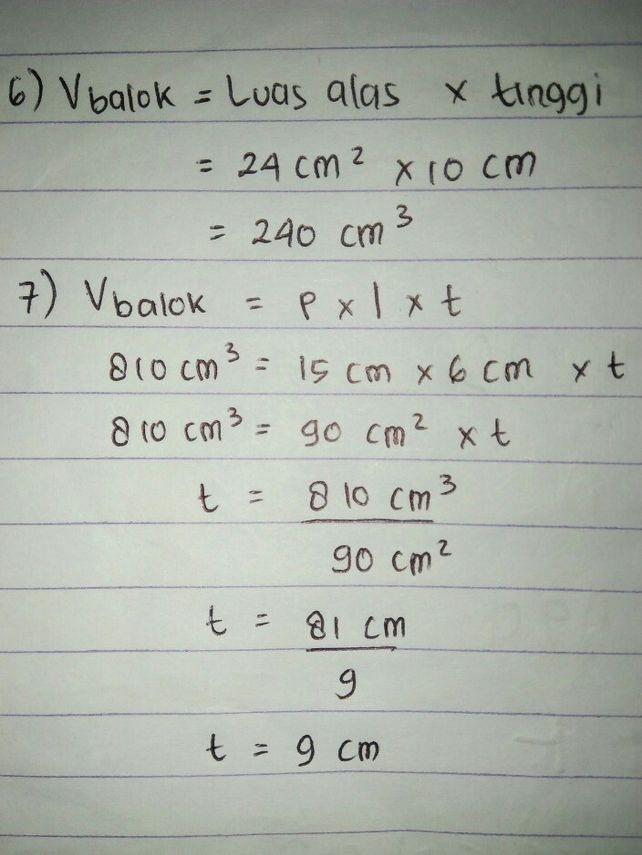 6) Vbalok = Luas alas x tinggi
= 24 cm² x 10 cm
= 240 cm³
7) Vbalok = p x l x t
810 cm³ = 15 cm x 6 cm x t
810 cm³ = 90 cm² x t
t = 810 cm³
90 cm²
t = 81 cm
9
t = 9 cm